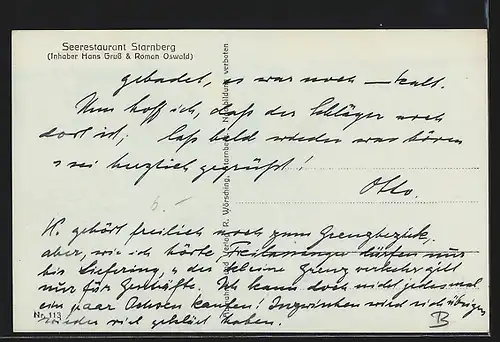 Seerestaurant Starnberg
(Inhaber Hans Gruß & Roman Oswald)
gebadet, es war noch — kalt.
Nun hoff ich, daß der Schläger noch
dort ist; laß bald wieder was hören
u sei herzlich gegrüßt!
Otto.
6.-
K. gehört freilich noch zum Grenzbezirk,
aber, wie ich hörte, dürfen nur
bis Liefering, u der kleine Grenzverkehr gilt
nur für Geschäfte. Ich kann doch nicht jedesmal
ein paar Ochsen kaufen! Inzwischen wird sich übrigens
wieder viel geklärt haben.
Nr. 113
B
Verlag R. Wörsching, Starnberg Nachbildung verboten